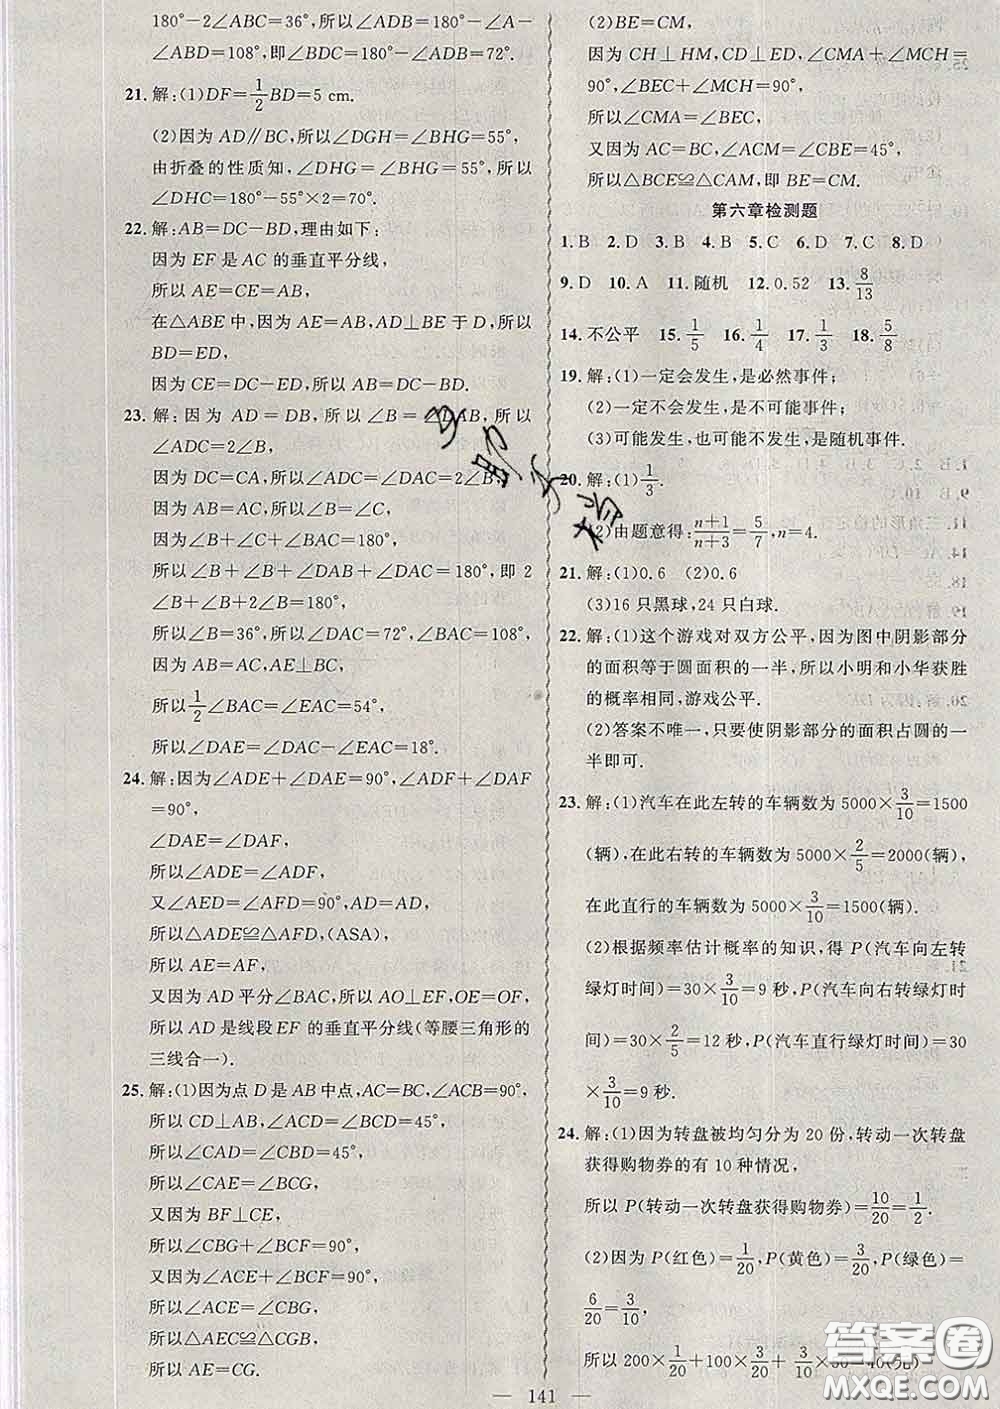 180°-2∠ABC=36°,所以∠ADB=180°-∠A-
∠ABD=108°,即∠BDC=180°-∠ADB=72°.
21. 解:(1)DF=1/2BD=5 cm.
(2)因为 AD∥BC,所以∠DGH=∠BHG=55°,
由折叠的性质知,∠DHG=∠BHG=55°,所以
∠DHC=180°-55°×2=70°.
22. 解:AB=DC-BD,理由如下:
因为 EF 是 AC 的垂直平分线,
所以 AE=CE=AB,
在△ABE 中,因为 AE=AB,AD⊥BE 于 D,所以
BD=ED,
因为 CE=DC-ED,所以 AB=DC-BD.
23. 解:因为 AD=DB,所以∠B=∠DAB,所以
∠ADC=2∠B,
因为 DC=CA,所以∠ADC=∠DAC=2∠B,
因为 AB=AC,所以∠B=∠C,
因为∠B+∠C+∠BAC=180°,
所以∠B+∠B+∠DAB+∠DAC=180°,即 2
∠B+∠B+2∠B=180°,
所以∠B=36°,所以∠DAC=72°,∠BAC=108°,
因为 AB=AC,AE⊥BC,
所以1/2∠BAC=∠EAC=54°,
所以∠DAE=∠DAC-∠EAC=18°.
24. 解:因为∠ADE+∠DAE=90°,∠ADF+∠DAF
=90°,
∠DAE=∠DAF,
所以∠ADE=∠ADF,
又∠AED=∠AFD=90°,AD=AD,
所以△ADE≌△AFD,(ASA)
所以 AE=AF,
又因为 AD 平分∠BAC,所以 AO⊥EF,OE=OF,
所以 AD 是线段 EF 的垂直平分线(等腰三角形的
三线合一).
25. 解:(1)因为点 D 是 AB 中点,AC=BC,∠ACB=90°,
所以 CD⊥AB,∠ACD=∠BCD=45°,
∠CAD=∠CBD=45°,
所以∠CAE=∠BCG,
又因为 BF⊥CE,
所以∠CBG+∠BCF=90°,
又因为∠ACE+∠BCF=90°,
所以∠ACE=∠CBG,
所以△ACE≌△CGB,
所以 AE=CG.
(2)BE=CM,
因为 CH⊥HM,CD⊥ED,∠CMA+∠MCH=
90°,∠BEC+∠MCH=90°,
所以∠CMA=∠BEC,
又因为 AC=BC,∠ACM=∠CBE=45°,
所以△BCE≌△CAM,即 BE=CM.
第六章检测题
1. B 2. D 3. B 4. B 5. C 6. D 7. C 8. D
9. D 10. A 11. 随机 12. 0.52 13. 8/13
14. 不公平 15. 1/5 16. 1/4 17. 1/3 18. 5/8
19. 解:(1)一定会发生,是必然事件;
(2)一定不会发生,是不可能事件;
(3)可能发生,也可能不发生,是随机事件.
20. 解:(1)1/3.
(2)由题意得:(n+1)/(n+3)=5/7,n=4.
21. 解:(1)0.6 (2)0.6
(3)16 只黑球,24 只白球.
22. 解:(1)这个游戏对双方公平,因为图中阴影部分
的面积等于圆面积的一半,所以小明和小华获胜
的概率相同,游戏公平.
(2)答案不唯一,只要使阴影部分的面积占圆的一
半即可.
23. 解:(1)汽车在此左转的车辆数为 5000×3/10=1500
(辆),在此右转的车辆数为 5000×2/5=2000(辆),
在此直行的车辆数为 5000×3/10=1500(辆).
(2)根据频率估计概率的知识,得 P(汽车向左转
绿灯时间)=30×3/10=9 秒,P(汽车向右转绿灯时
间)=30×2/5=12 秒,P(汽车直行绿灯时间)=30
×3/10=9 秒.
24. 解:(1)因为转盘被均匀分为 20 份,转动一次转盘
获得购物券的有 10 种情况,
所以 P(转动一次转盘获得购物券)=10/20=1/2.
(2)因为 P(红色)=1/20,P(黄色)=3/20,P(绿色)=
6/20=3/10,
所以 200×1/20+100×3/20+50×3/10=40(元)
— 141 —
答案圈
MXQE.COM